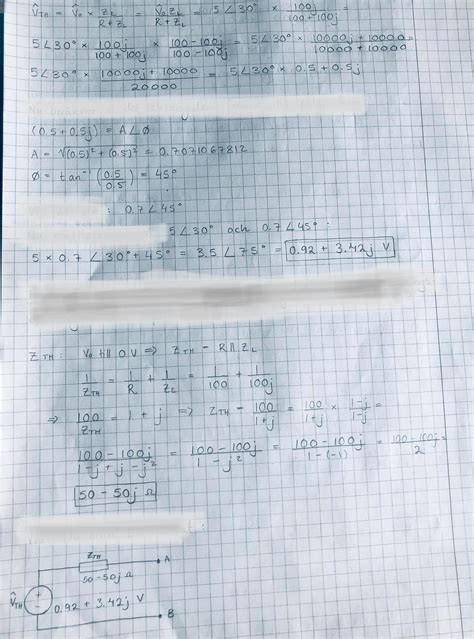 V̂TH = V̂o × ZL/(R + ZL) = V̂o ZL/(R + ZL) = 5∠30° × 100j/(100 + 100j) =
5∠30° × 100j/(100 + 100j) × (100 - 100j)/(100 - 100j) = 5∠30° × (10000j + 10000)/(10000 + 10000) =
5∠30° × (10000j + 10000)/20000 = 5∠30° × 0.5 + 0.5j
(0.5 + 0.5j) = A∠ø
A = √(0.5)² + (0.5)² = 0.7071067812
ø = tan⁻¹(0.5/0.5) = 45°
: 0.7∠45°
5∠30° och 0.7∠45°:
5 × 0.7 ∠30° + 45° = 3.5∠75° = 0.92 + 3.42j V
ZTH: Vo till 0V => ZTH = R || ZL
1/ZTH = 1/R + 1/ZL = 1/100 + 1/100j
=> 100/ZTH = 1 + j => ZTH = 100/(1+j) = 100/(1+j) × (1-j)/(1-j) =
(100 - 100j)/(1 - j + j - j²) = (100 - 100j)/(1 - j²) = (100 - 100j)/(1 - (-1)) = (100 - 100j)/2 =
50 - 50j Ω
ZTH
A
50 - 50j Ω
V̂TH + - 0.92 + 3.42j V
B